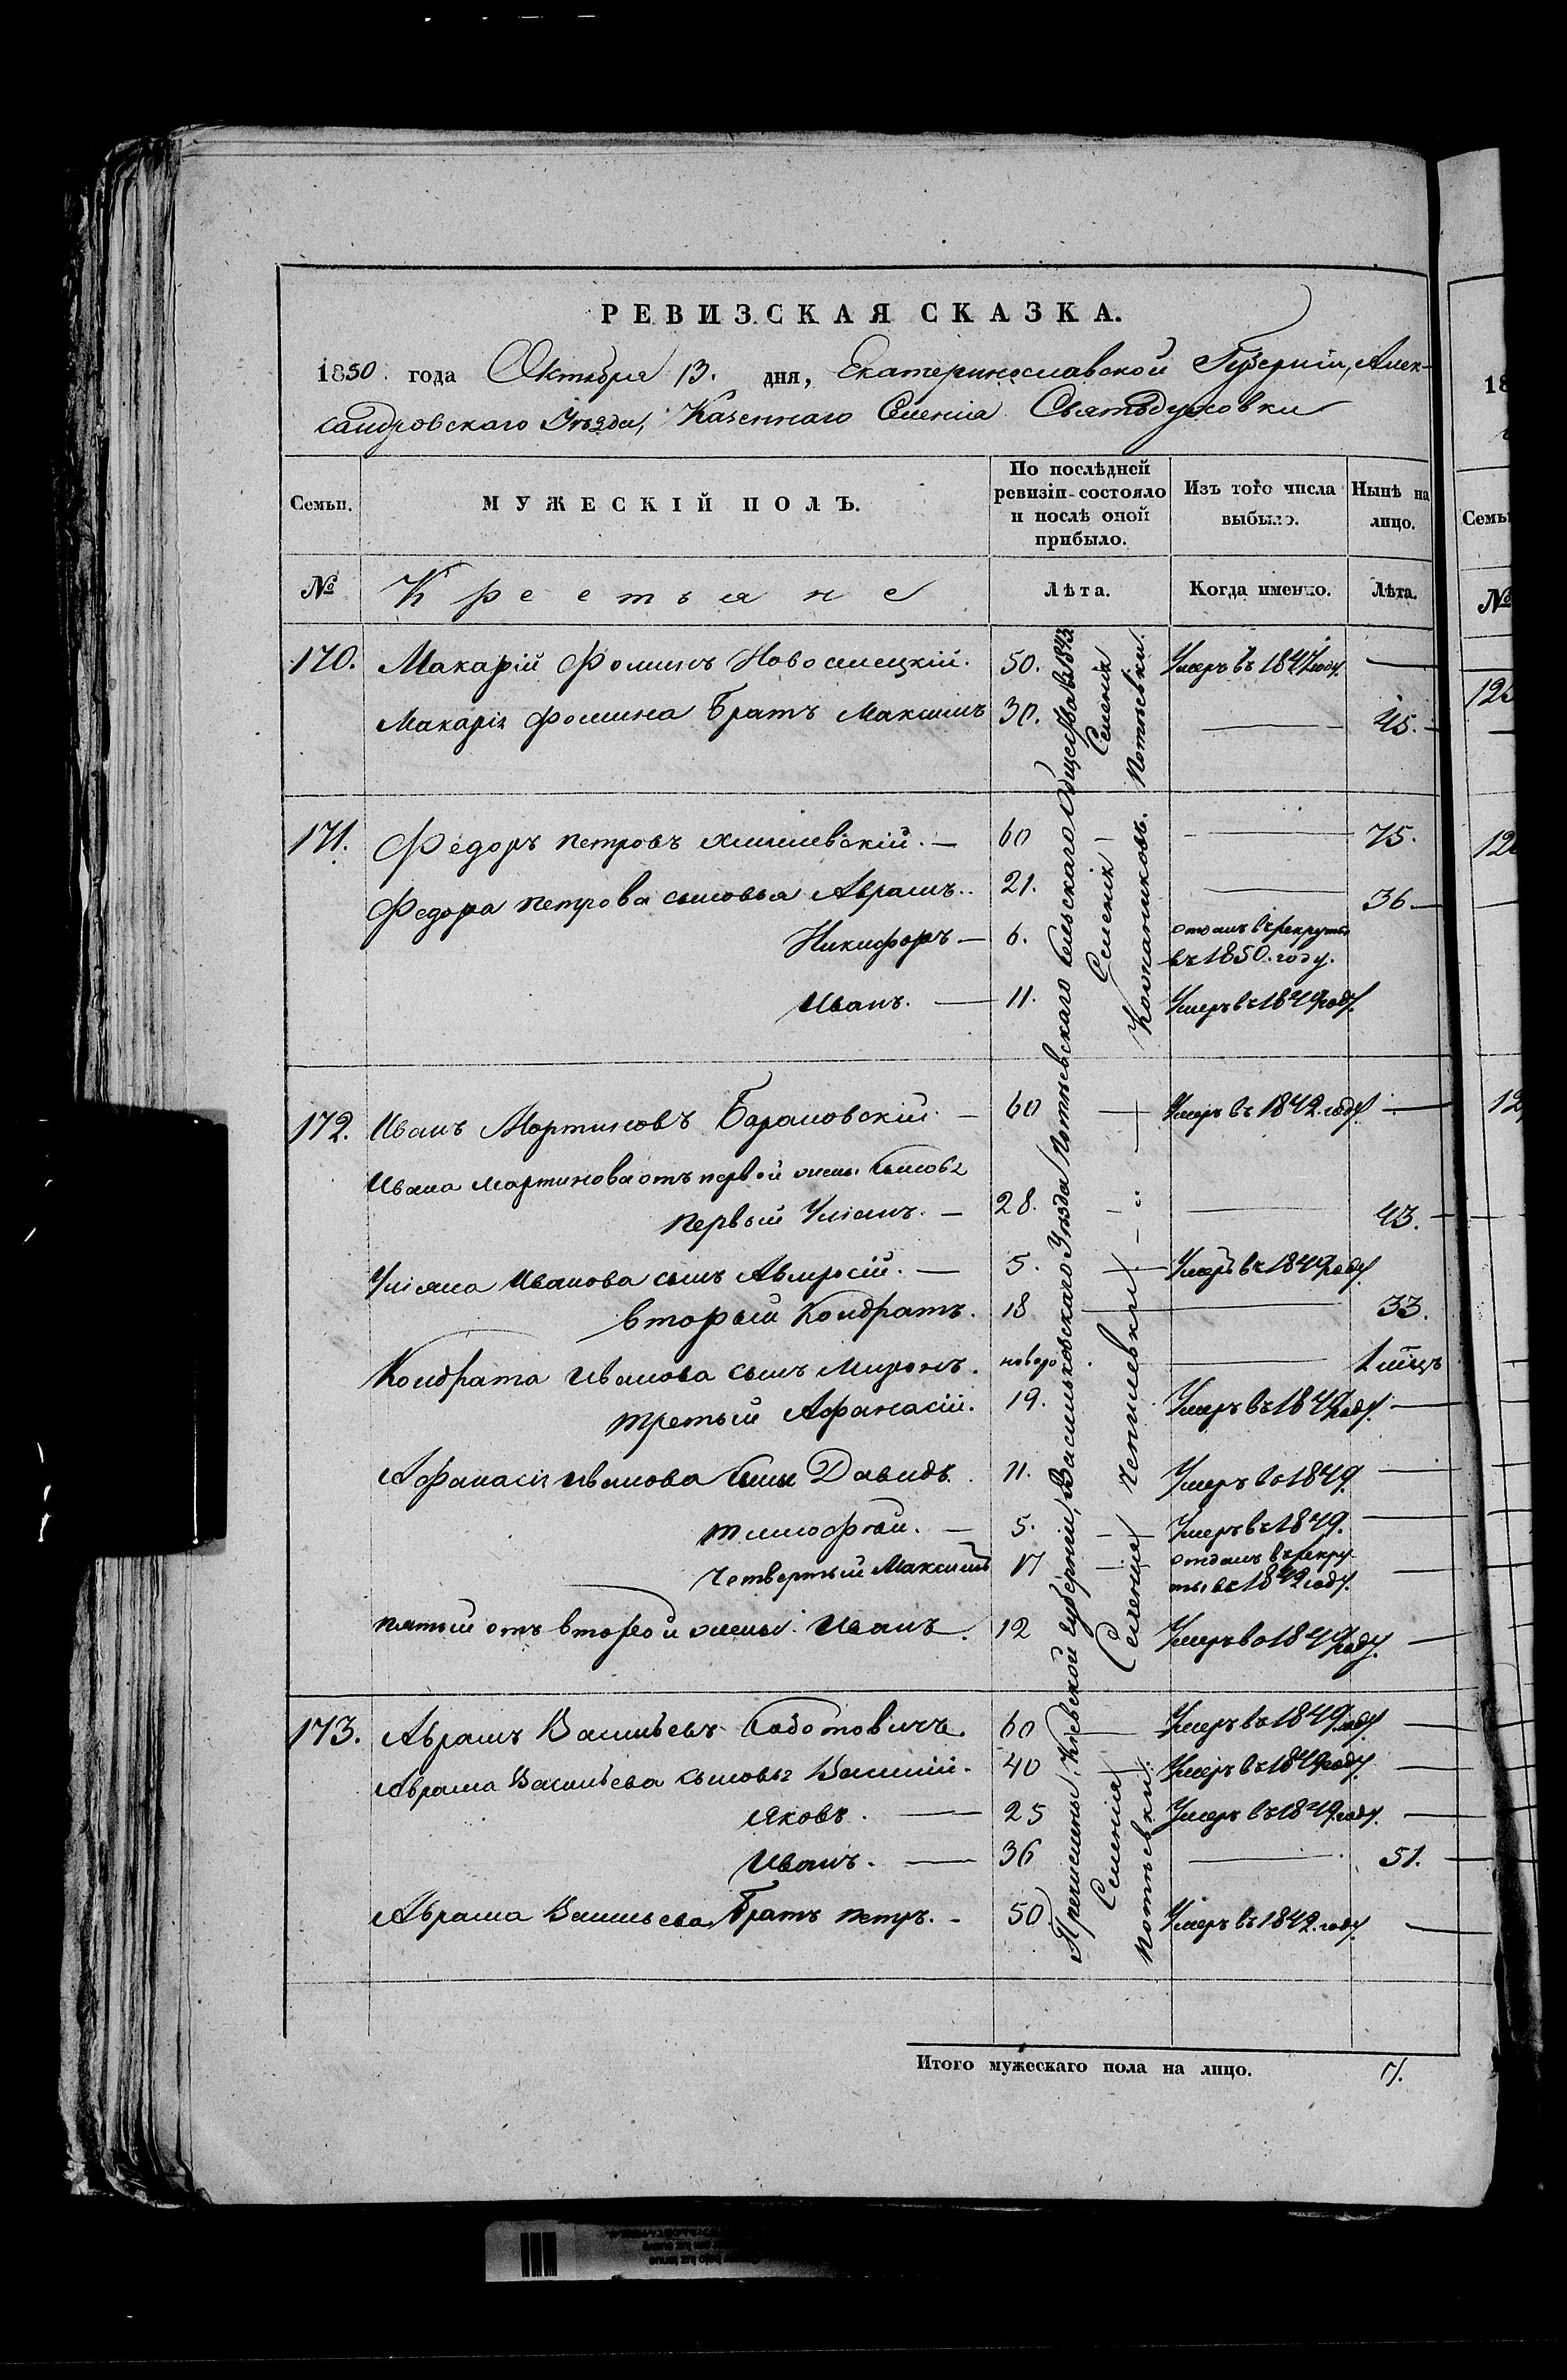 РЕВИЗСКАЯ СКАЗКА.
1850 года Октября 13. дня, Екатеринославской Губерніи, Алек-
сандровскаго Уѣзда, Казеннаго Селенія Святодуховки
Семьи.
МУЖЕСКІЙ ПОЛЪ.
По послѣдней
ревизіи состояло
и послѣ оной
прибыло.
Изъ того числа
выбыло.
Нынѣ на
лицо.
№
Крестьяне
Лѣта.
Когда именно.
Лѣта.
170. Макарій Фоминъ Новоселецкій. 50. Умеръ въ 1847 году. —
Макарія Фомина Братъ Максимъ 30. — 45.
171. Федоръ Петровъ — 60 — 75.
Федора Петрова сыновья Аврамъ. 21. — 36
Никифоръ — 6. отданъ въ рекруты
въ 1850. году.
Иванъ. — 11. Умеръ въ 1849 году.
172. Иванъ Мартиновъ Барановскій. — 60 — Умеръ въ 1842. году. —
Ивана Мартинова отъ первой жены сыновья
Первый Уліанъ. — 28. — 43.
Уліяна Иванова сынъ Амвросій. — 5. — Умеръ въ 1849 году.
вторый Кондратъ. 18 — 33.
Кондрата Иванова сынъ Миронъ. новоро. — 1 мѣцъ
третый Афанасій. 19. Умеръ въ 1849 году. —
Афанасія Иванова сыны Давидъ. 11. Умеръ въ 1849. —
Тимофѣй. — 5. — Умеръ въ 1849. —
четвертый Максимъ 17 — отданъ въ рекру-
ты въ 1842 году. —
пятый отъ второй жены Иванъ. 12 Умеръ въ 1849 году. —
173. Аврамъ Васильевъ Саботовичъ. 60 — Умеръ въ 1849. году. —
Аврама Васильева сыновья Василій. 40 — Умеръ въ 1849 году. —
Яковъ. — 25 Умеръ въ 1849. году. —
Иванъ. — 36 — 51.
Аврама Васильева Братъ Петръ. — 50 Умеръ въ 1842. году. —
Причислены Кіевской губерніи, Васильковскаго Уѣзда Потіевскаго Сельскаго Общества въ 1843.
Селенія
Потіевки.
Селенія
Селенія
Селенія
Потіевки.
Итого мужескаго пола на лицо. 7.
18
Семьи
№